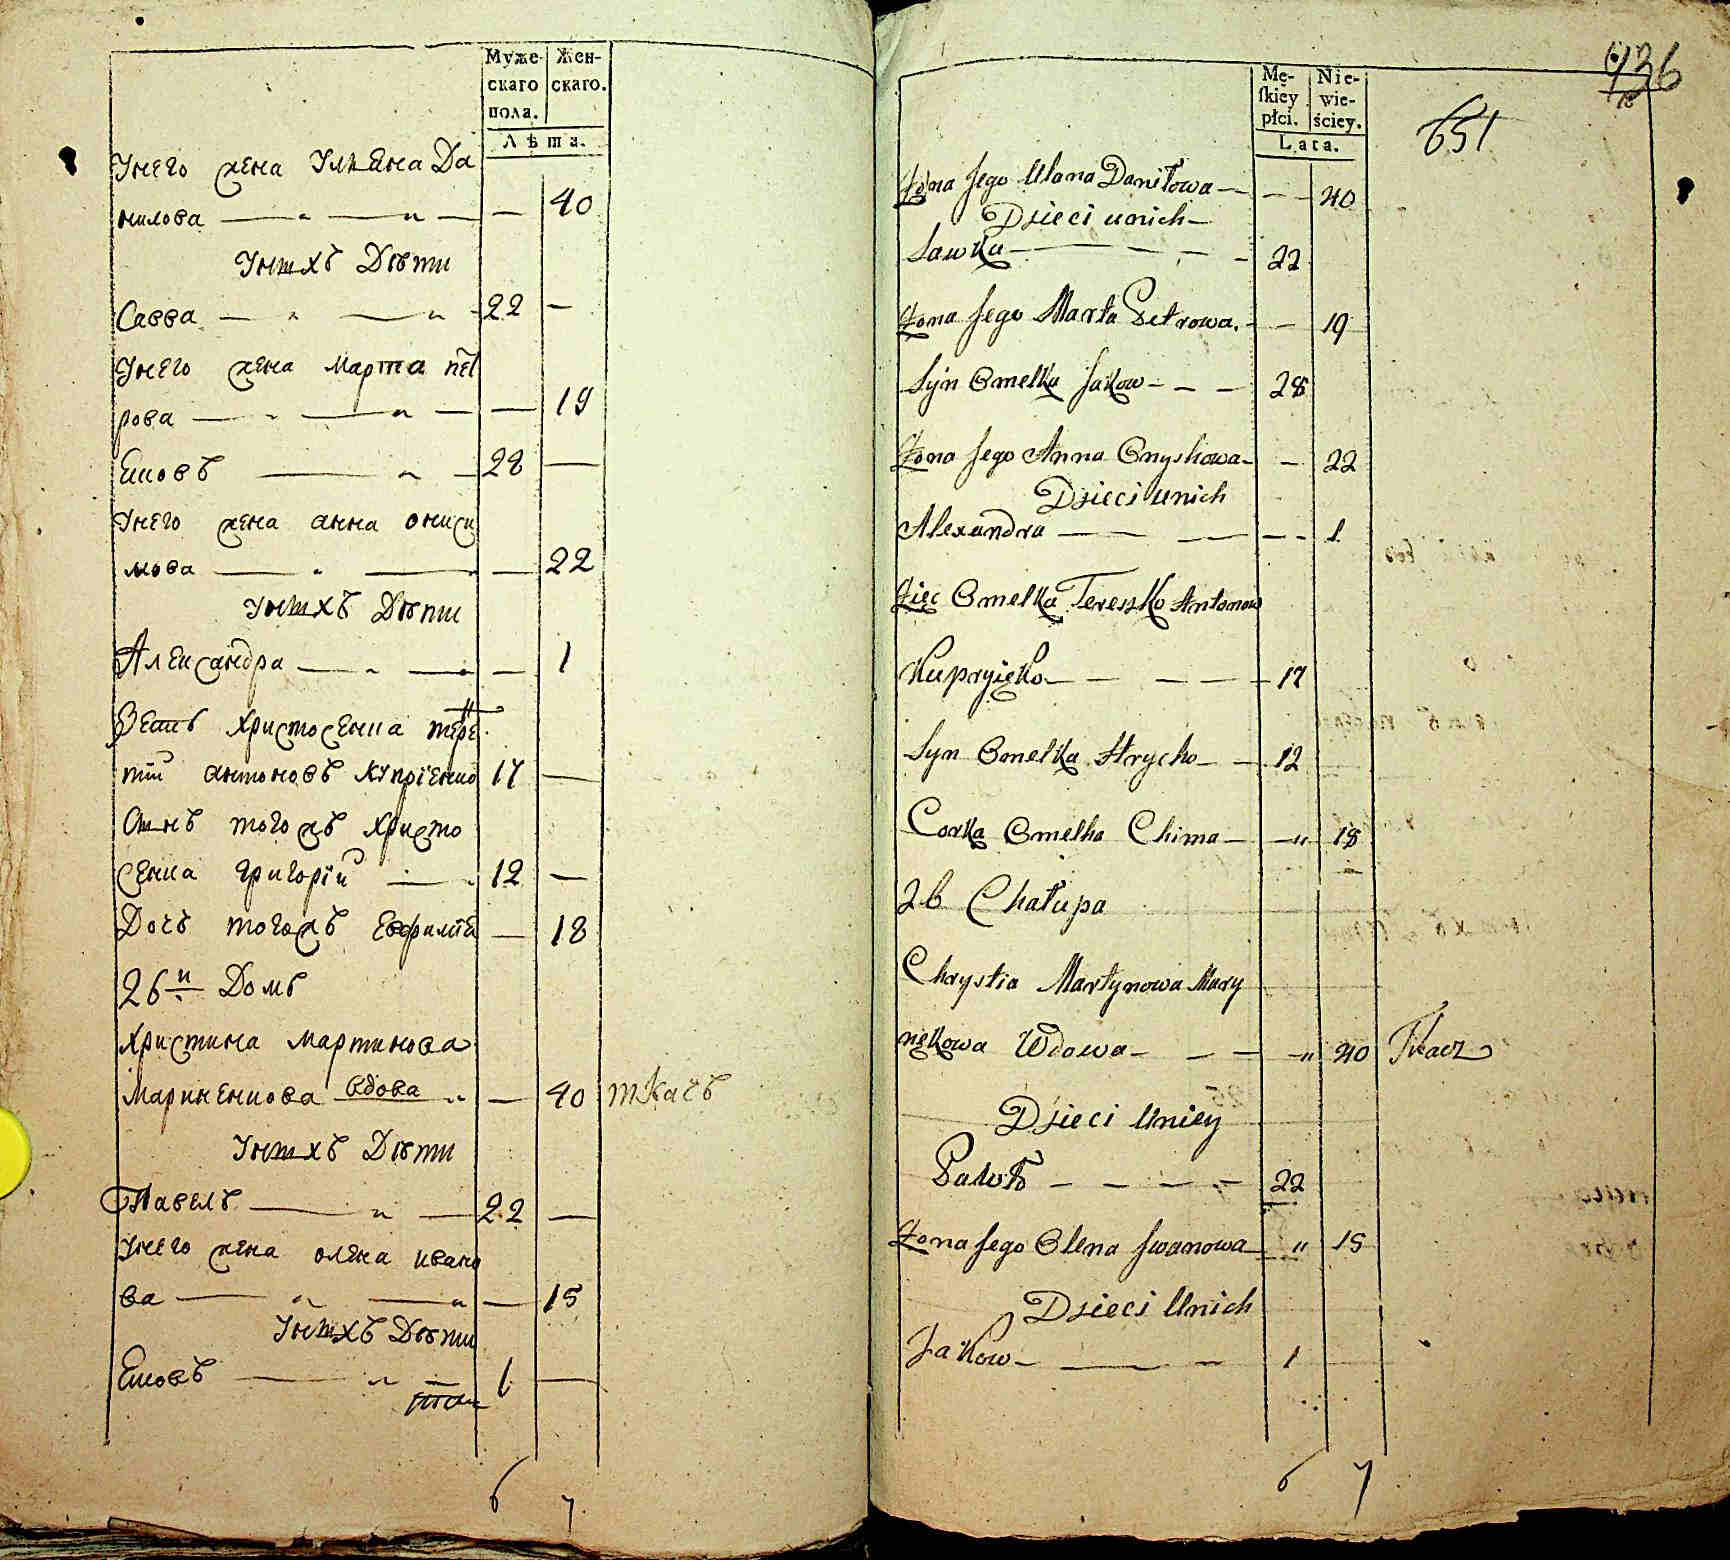 Муже-
скаго
пола.
Жен-
скаго.
Лѣта.
Унего жена Ульяна Да
нилова — 40
Унихъ Дѣти
Савва 22 —
Унего жена Марта пет
рова — 19
Яковъ 28 —
Унего жена анна ониси
мова — 22
Унихъ Дѣти
Александра — 1
Зять христосенка тере
тій антоновъ купріенко 17 —
Сынъ тогожъ христо
сенка григорій 12 —
Дочь тогожъ Евфимія — 18
26й Домъ
христина мартинова
Мариненкова вдова — 40 ткачъ
Унихъ Дѣти
Павелъ 22 —
Унего жена олена ивано
ва — 15
Унихъ Дѣти
Яковъ 1 —
6 7
936
651
Mę-
skiey
płci.
Nie-
wie-
ściey.
Lata.
Żona Jego Ulana Daniłowa — 40
Dzieci unich
Sawka 22
Żona Jego Marta Petrowa. — 19
Syn Omelka Jakow 28
Żona Jego Anna Onyskowa — 22
Dzieci unich
Alexandra — 1
Zięc Omelka Tereszko Antonow
Kupryięko 17
Syn Omelka Hrycko 12
Corka Omelka Chima — " 18
26 Chałupa
Chrystia Martynowa Mary
nękowa Wdowa — " 40 Tkacz
Dzieci Uniey
Pawło 22
Żona Jego Olena Jwanowa " 15
Dzieci Unich
Jakow 1
6 7